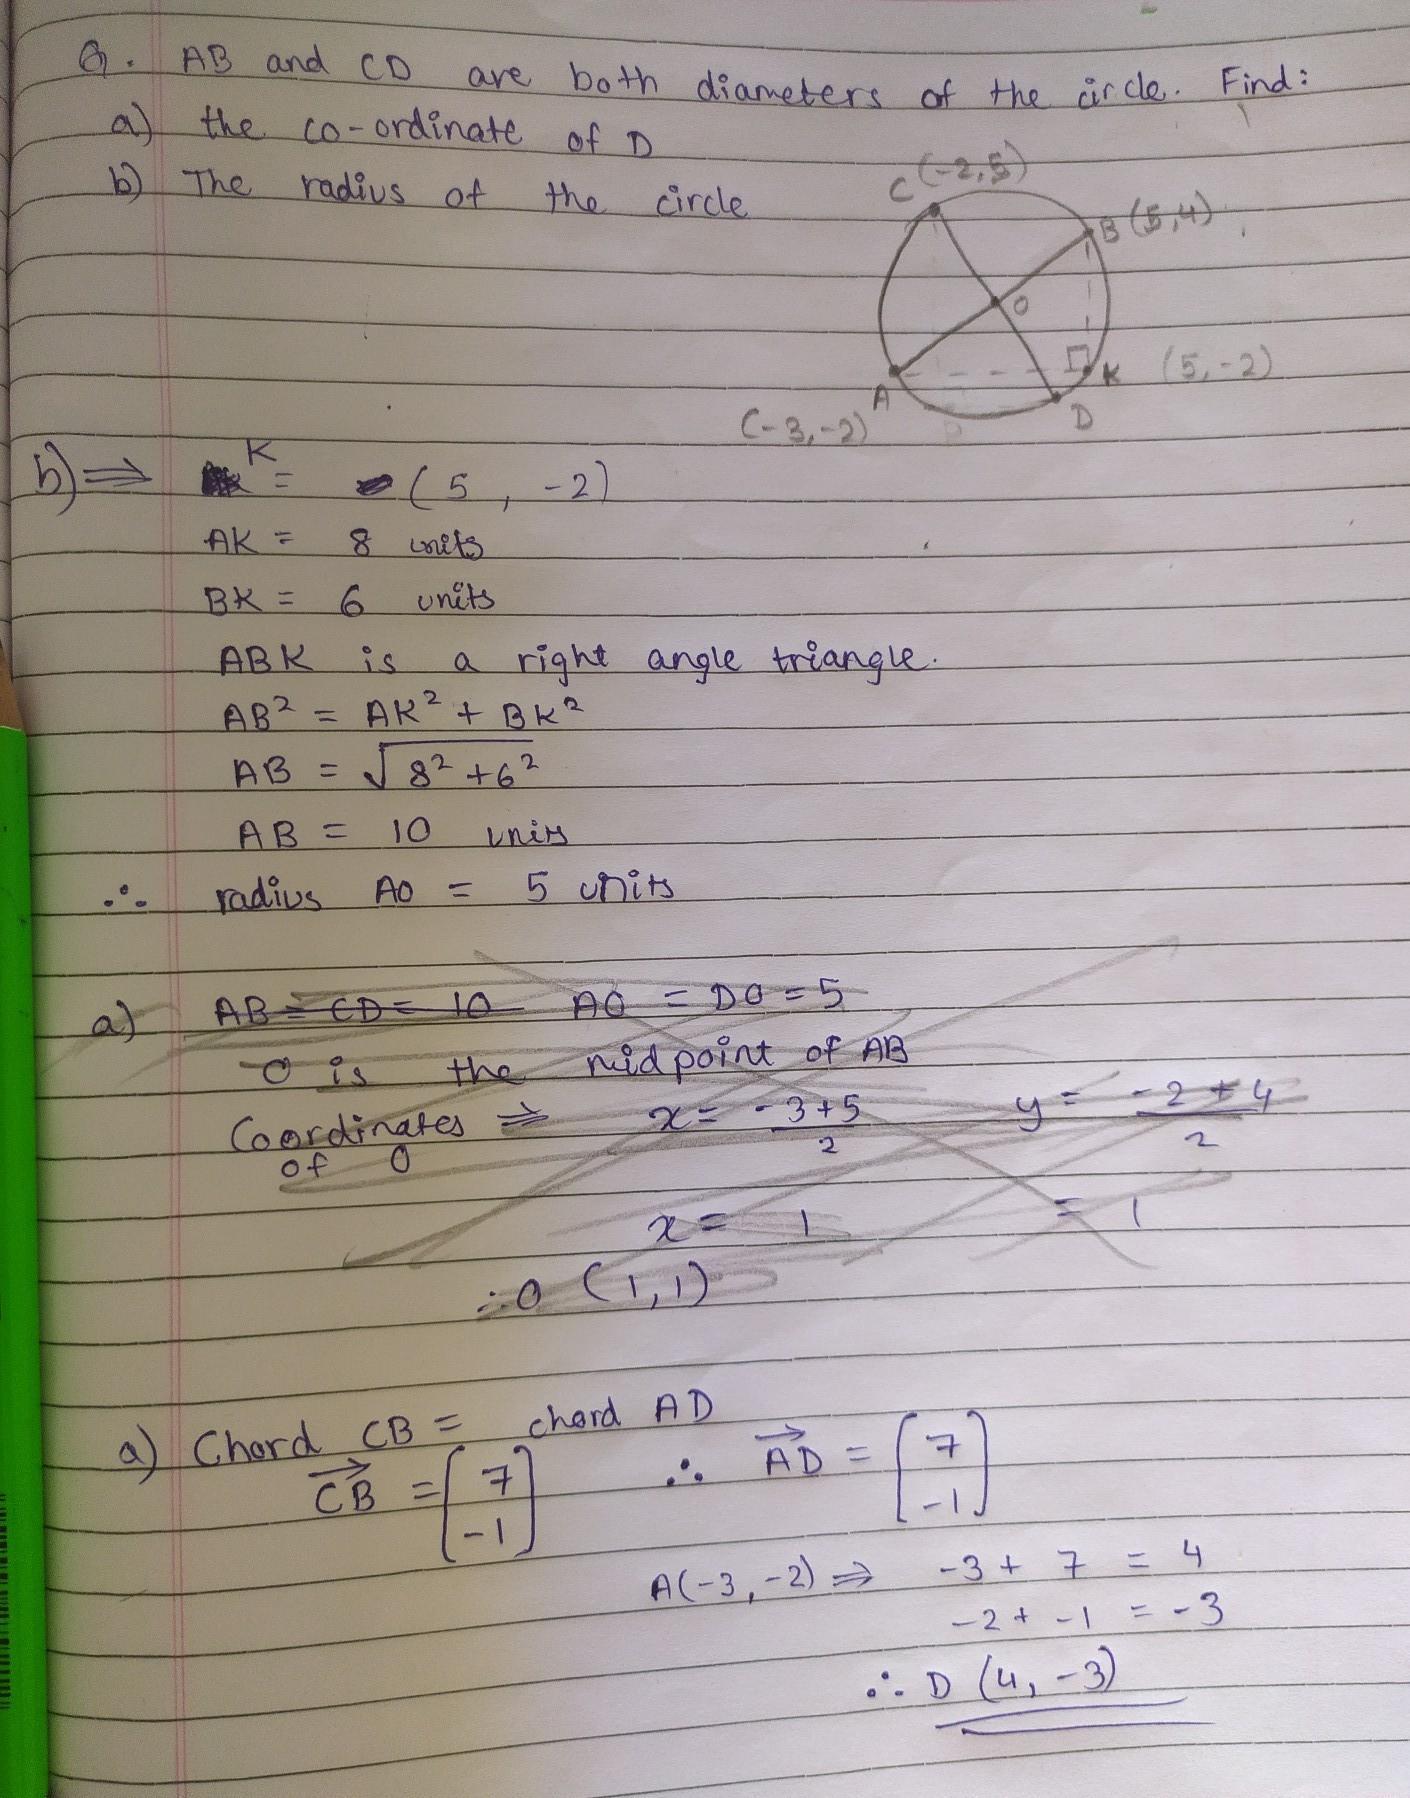 Q. AB and CD are both diameters of the circle. Find:
a) the co-ordinate of D
b) The radius of the circle
C (-2,5)
B (5,4)
O
A
(-3,-2)
D
K (5,-2)
b) ⇒ K = (5, -2)
AK = 8 units
BK = 6 units
ABK is a right angle triangle.
AB² = AK² + BK²
AB = √8² + 6²
AB = 10 units
∴ radius AO = 5 units
a) AB = CD = 10 AO = DO = 5
O is the midpoint of AB
Coordinates of O ⇒ x = -3+5/2 y = -2+4/2
x = 1 = 1
∴ O (1,1)
a) Chord CB = chord AD
CB→ = [7 -1] ∴ AD→ = [7 -1]
A(-3,-2) ⇒ -3 + 7 = 4
-2 + -1 = -3
∴ D (4, -3)